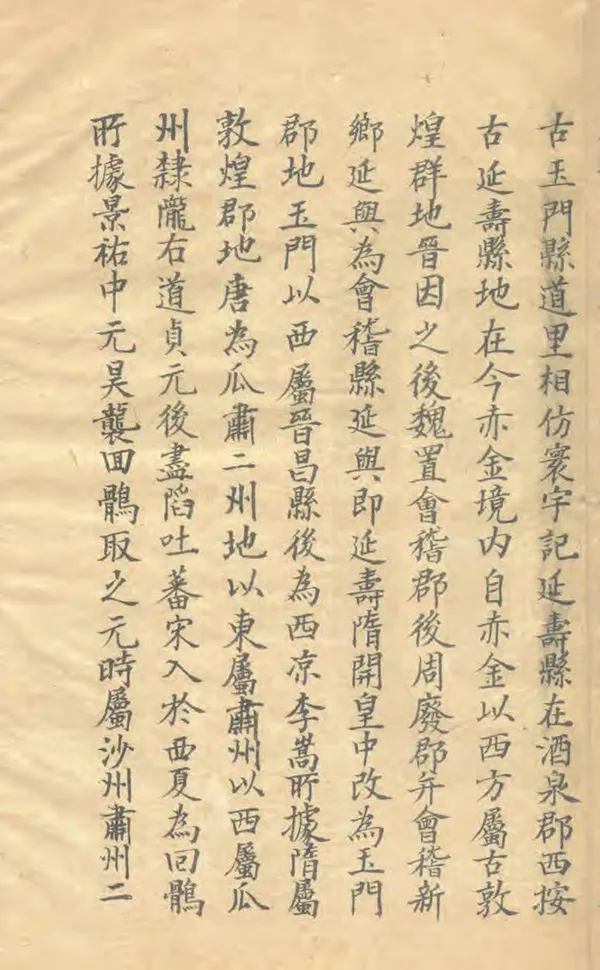 古玉門縣道里相仿寰宇記延壽縣在酒泉郡西按
古延壽縣地在今赤金境内自赤金以西方屬古敦
煌群地晉因之後魏置會稽郡後周廢郡弁會稽新
鄉延興為會稽縣延興即延壽隋開皇中改為玉門
郡地玉門以西屬晉昌縣後為西凉李暠所據隋屬
敦煌郡地唐為瓜肅二州地以東屬肅州以西屬瓜
州隸隴右道貞元後盡陷吐蕃宋入於西夏為回鶻
所據景祐中元昊襲回鶻取之元時屬沙州肅州二